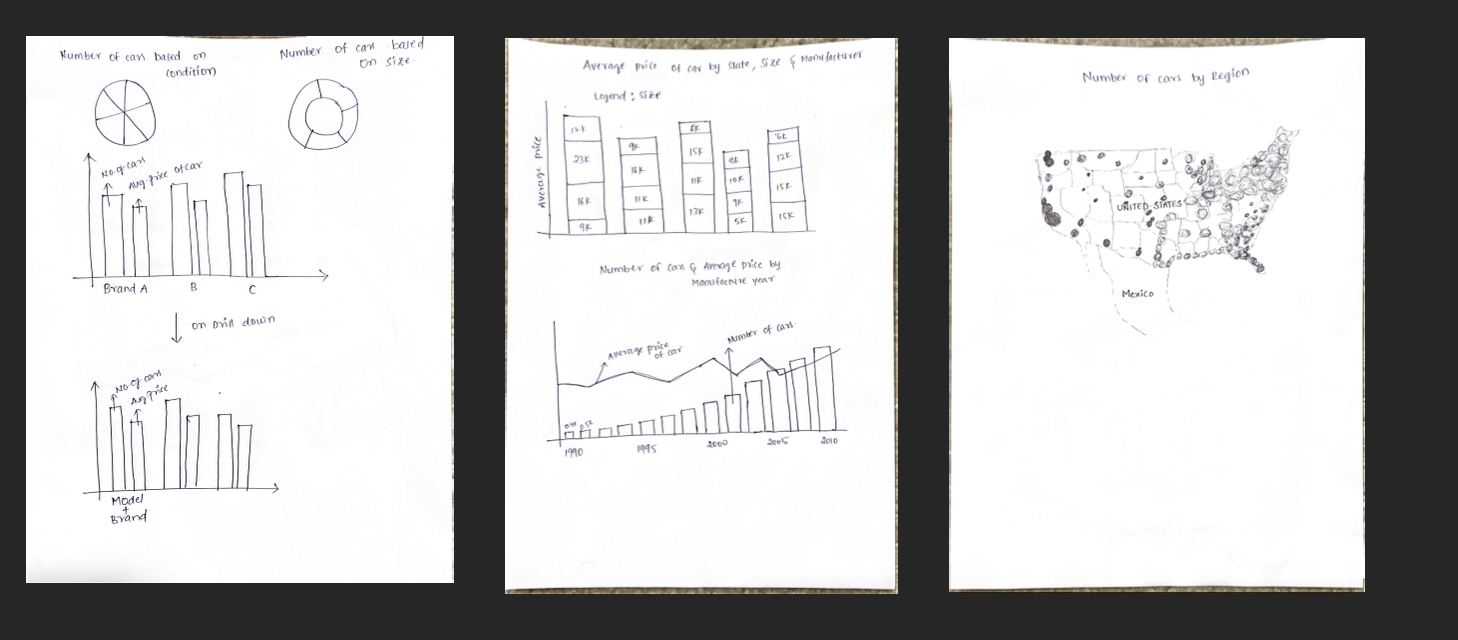 Number of cars based on
Condition
Number of cars based
on size.
No. of cars
Avg. Price of car
Brand A
B
C
on Drill down
No. of cars
Avg Price
Model
+
Brand
Average price of car by State, Size & Manufacturer
Legend : Size
Average price
12K
23K
16K
9K
9K
16K
11K
11K
6K
15K
11K
13K
10K
9K
5K
6K
12K
15K
15K
Number of cars & Average price by
Manufacture year
Average price
of car
Number of cars
1990
1995
2000
2005
2010
Number of cars by Region
UNITED STATES
Mexico